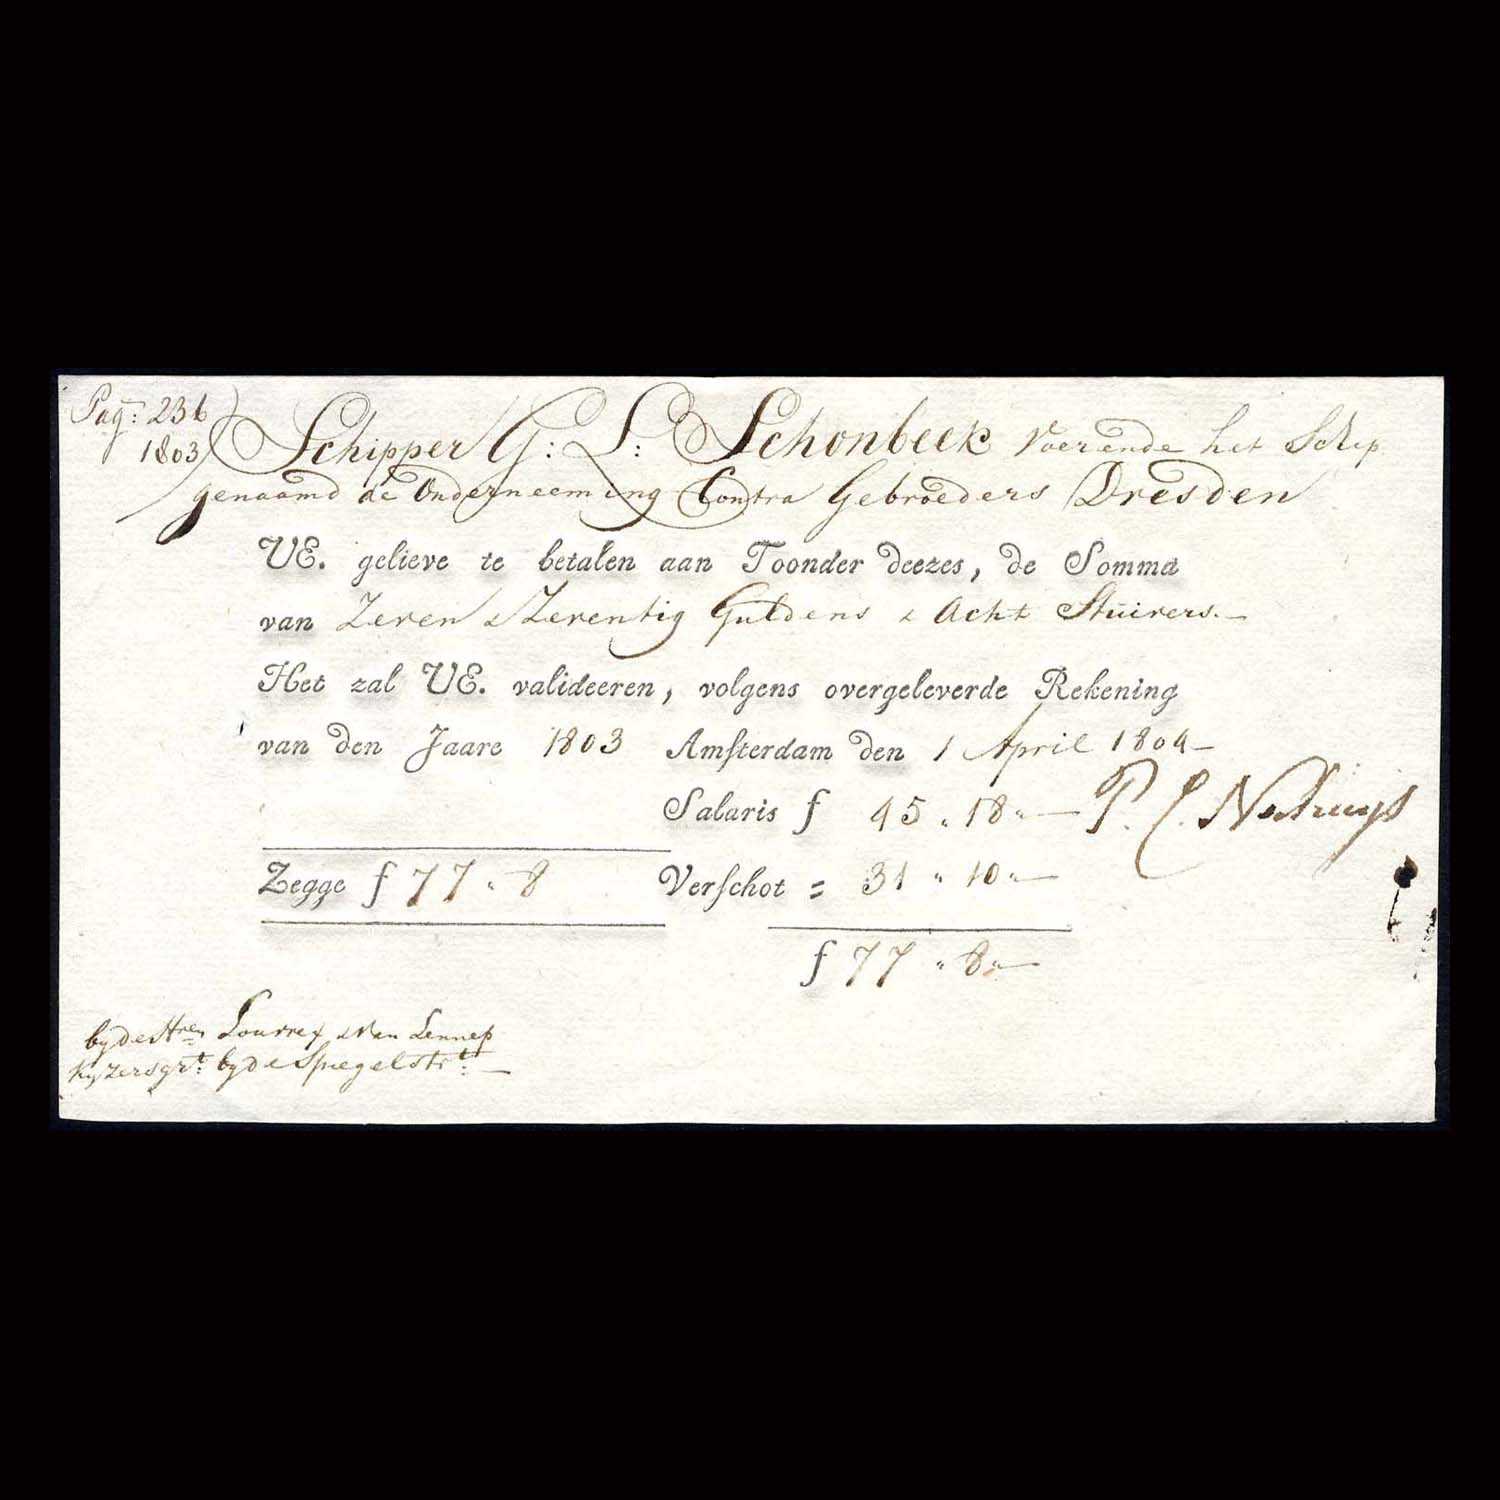 Pag: 236
1803
Schipper G: L: Schonbeek Voerende het Schip
genaamd de Onderneeming Contra Gebroeders Dresden
UE. gelieve te betalen aan Toonder deezes, de Somma
van Zeven & Zeventig Guldens & Acht Stuivers.—
Het zal UE. valideeren, volgens overgeleverde Rekening
van den Jaare 1803 Amsterdam den 1 April 1804—
Salaris f 45 „ 18 „— P. C. Nahuys
Zegge f 77 „ 8 Verschot = 31 „ 10 „—
f 77 „ 8 „—
by de Hren Lourrey & Van Lennep
Kyzersgrt: by de Spiegelstrt:—